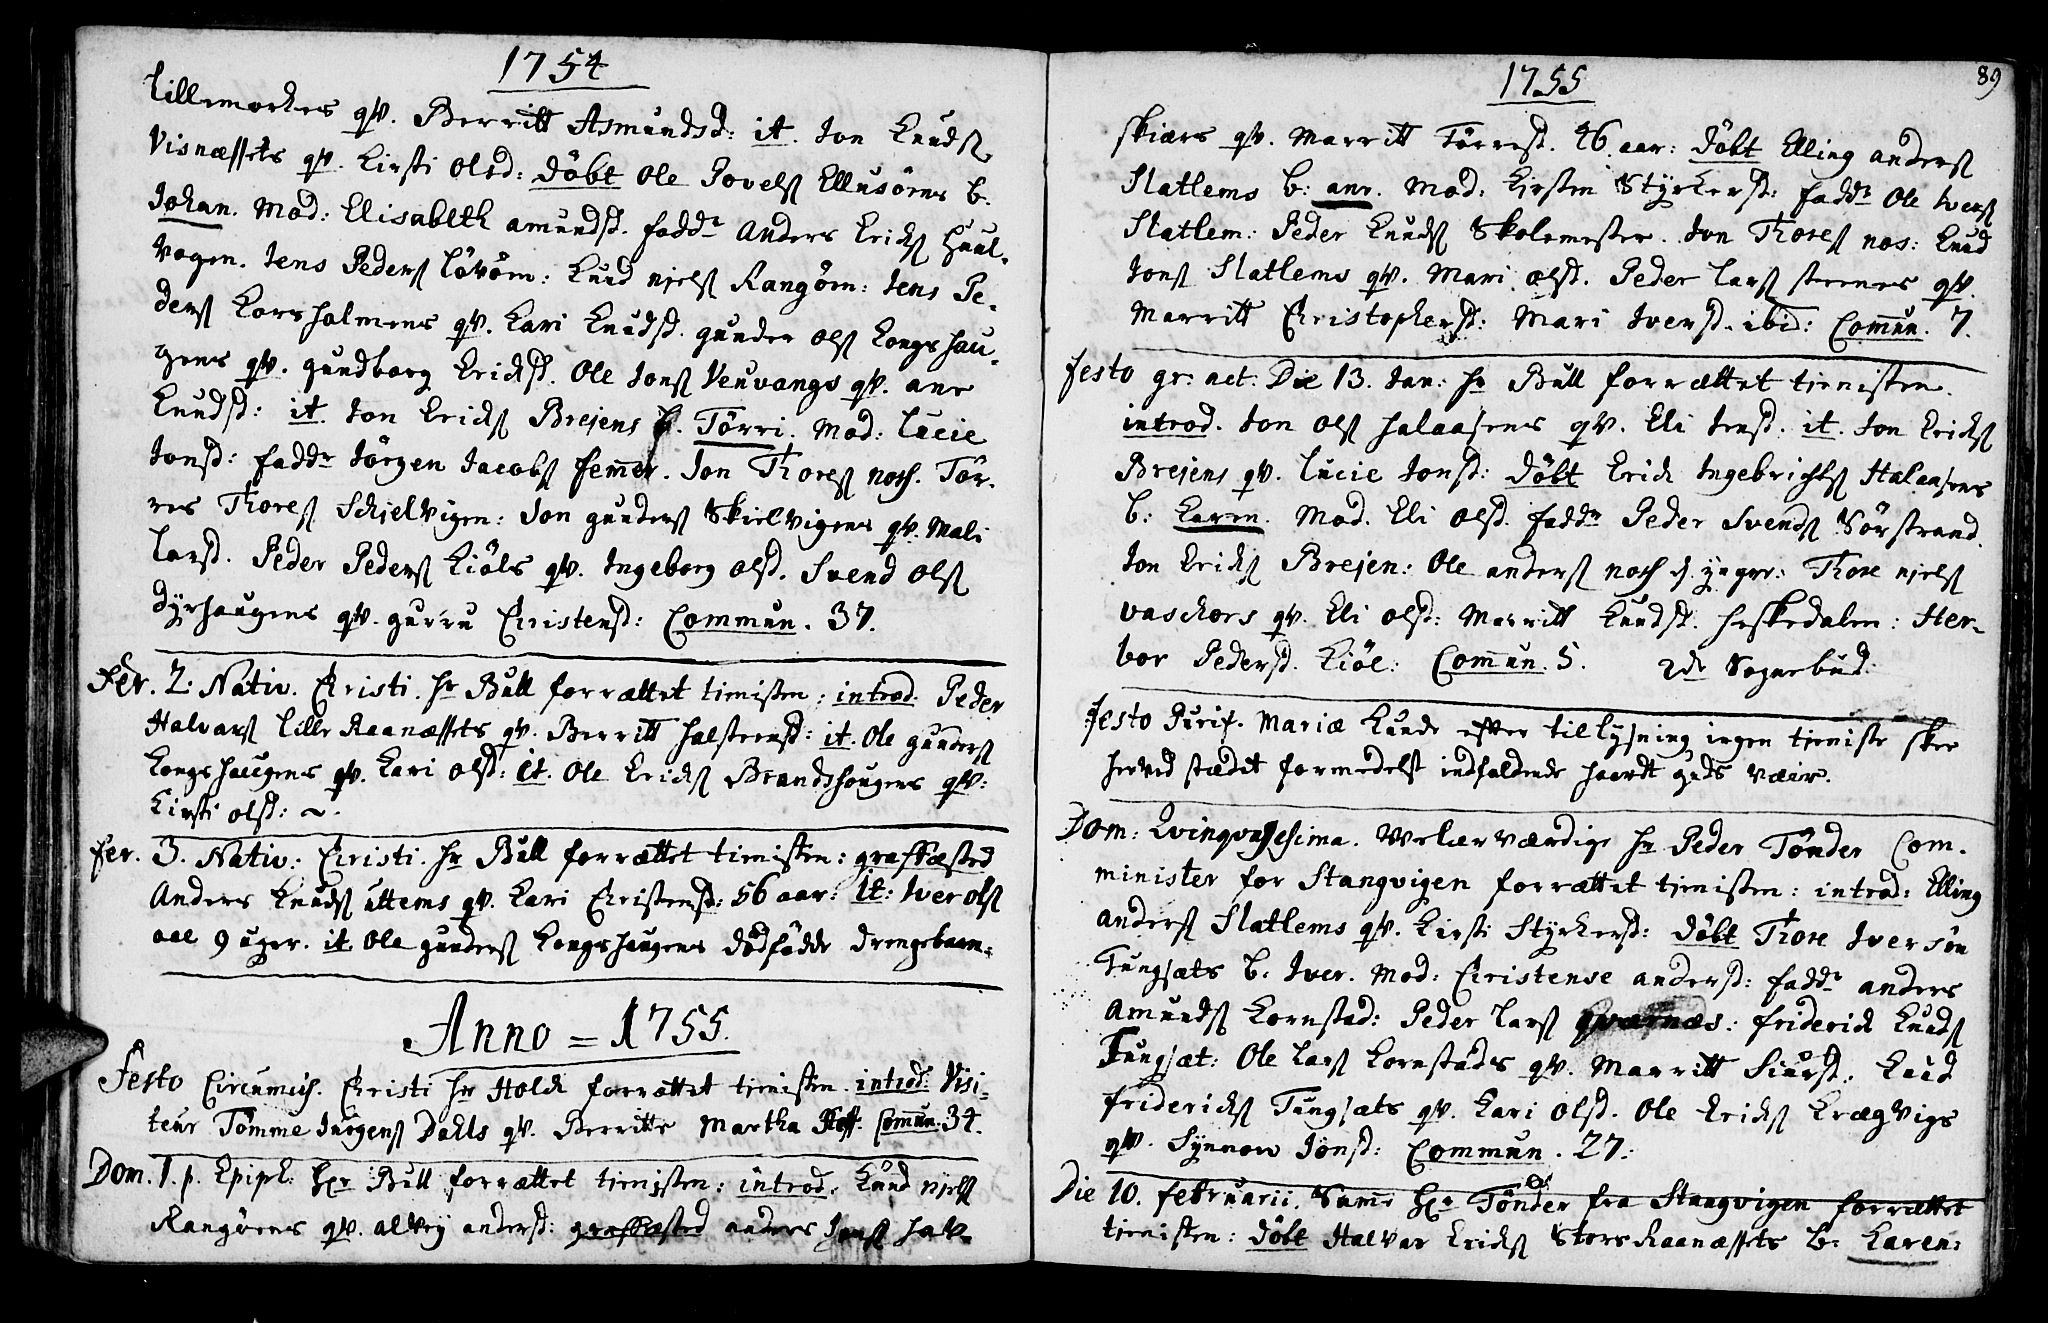 1754
Lillemorkens qv. Berritt Asmundsd: it. Jon Knuds
Visnæssets qv. Kirsti Olsd: döbt Ole Povels Ellusörens b.
Johan. Mod: Elisabeth amundsd. fadd:r Anders Erichs Huul-
vogen. Jens Peders Lövöm: Knud njels Rangörn: Jens Pe-
ders Korsholmens qv. Kari Knudsd. gunder ols Kongshau-
gens qv. gundborg Erichsd. Ole Jons Veuvangs qv. ane
Knudsd: it. Jon Erichs Brejens b. Törri. Mod: Lucie
Jonsd: fadd:r Jörgen Jacobs femmer. Jon Thores nos. Tör-
res Thores Schjelvigen: Jon gunders Skielvigens qv. Mali
Larsd. Peder Peders Kiöls qv. Ingeborg olsd. Svend ols
dyrhaugens qv. gurru Christensd: Commun. 37.
Fer. 2. Nativ. Christi. Hr Bull forrættet tienisten: introd. Peder
Halvars Lille Raanæssets qv. Berritt Halsteensd: it. Ole gunders
Kongshaugens qv. Kari olsd: it. Ole Erichs Brandshougens qv:
Kirsti olsd: ~.
Fer. 3. Nativ: Christi. Hr Bull forrættet tienisten: graffæsted
Anders Knuds Uttems qv. Kari Christensd: 56 aar: it: Iver ols
aae 9 uger. it. Ole gunders Kongshaugens dödfödde drengebarn.
Anno = 1755.
Festo Circumcis. Christi Hr Holck forrættet tienisten. introd: Visi-
teur Tömme Jurgens Dahls qv. Berritte Martha Hoff. Commun. 34.
Dom. 1. p. Epiph: Hr Bull forrættet tienisten: introd. Knud njels
Rangörens qv. alvey andersd: graffæsted anders Jons Hav-
1755
89
skiærs qv. Marritt Törresd. 46 aar: döbt Elling anders
Slatlems b: ane. Mod: Kirsten Styrkersd: fadd:r Ole Ivers
Slatlem: Peder Knuds Skolemester. Jon Thores nos: Knud
Jons Slatlems qv. Mari olsd. Peder Lars steenes qv.
Marritt Christophersd: Mari Iversd. ibid: Commun. 7.
Festo gr: act: Die 13. Jan: Hr Bull forrættet tienisten.
introd. Jon ols Halaasens qv. Eli Jensd. it. Jon Erichs
Brejens qv. Lucie Jonsd: döbt Erich Ingebrichts Halaasens
b: Karen. Mod. Eli olsd. fadd:r Peder Svends Sörstrand.
Jon Erichs Brejen: Ole anders nos d. yngre: Thore njels
vaschors qv. Eli olsd: Marritt Knudsd. Heskedalen: Her-
bor Pedersd. Kiöl: Commun. 5. 2de Sognebud:
Festo Purif. Mariæ Kunde efter tillysning ingen tieniste skee
herved stædet formedelst indfaldende haardt guds væir.
Dom: Qvinqvagesima. Velærværdige Hr Peder Tönder Com-
minister for Stangvigen forrættet tienisten: introd: Elling
anders Slatlems qv. Kirsti Styrkersd: döbt Thore Iversön
Tungsæts b. Iver. Mod: Christense andersd: fadd:r anders
Amunds Kornstad: Peder Lars qværnæs: friderich Knuds
Tungsæt: Ole Lars Kornstads qv. Marritt Siursd. Knud
friderichs Tungsæts qv. Kari olsd. Ole Erichs Krægvigs
qv. Synnow Jönsd: Commun. 27.
Die 10. februarii. Same Hr Tönder fra Stangvigen forrættet
tienisten: döbt Halvar Erichs Stors Raanæssets b. Karen: